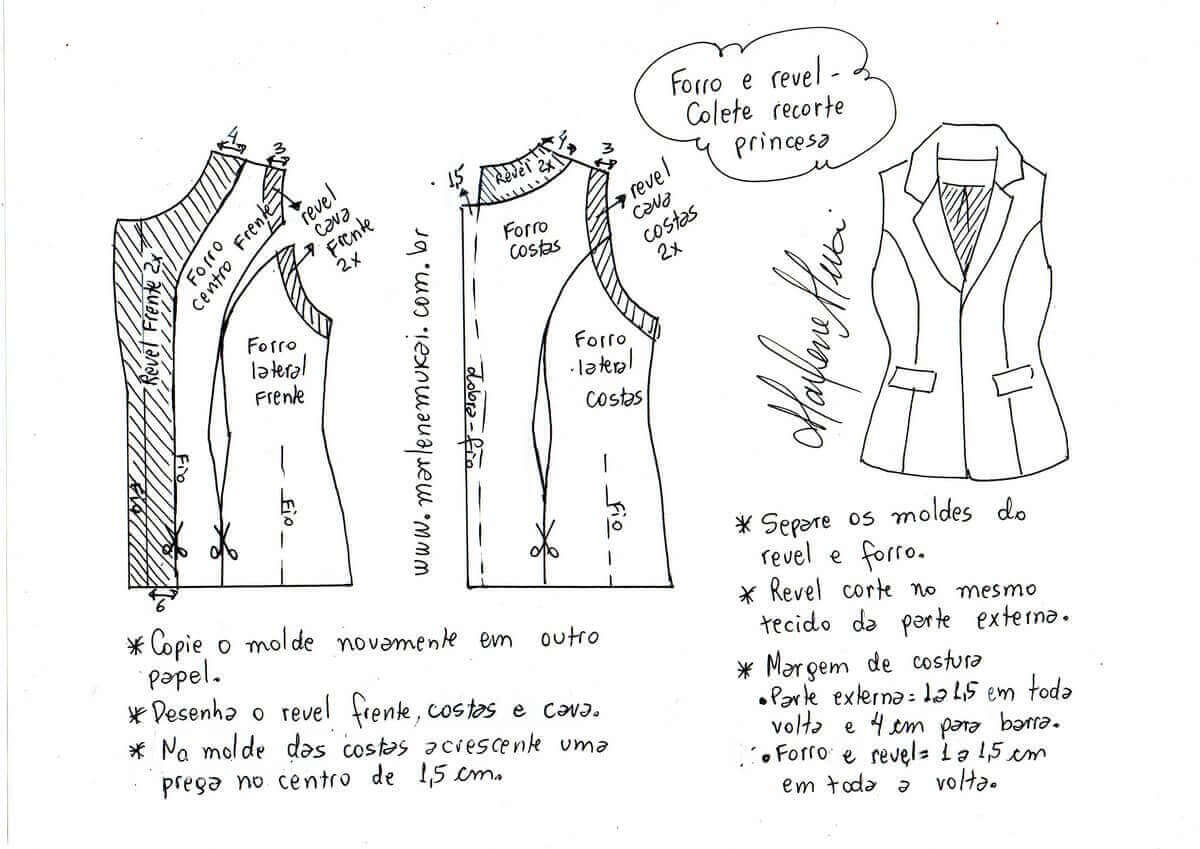 Forro e revel-
Colete recorte
princesa
4
3
Revel Frente 2x
Forro
centro Frente
revel
cava
Frente
2x
Forro
lateral
Frente
Fio
Fio
Fio
6
www.marlenemukai.com.br
1,5
4
3
Revel 2x
Forro
costas
revel
cava
costas
2x
Forro
lateral
costas
dobra-fio
Fio
Marlene Mukai
* Copie o molde novamente em outro
papel.
* Desenha o revel frente, costas e cava.
* Na molde das costas acrescente uma
prega no centro de 1,5 cm.
* Separe os moldes do
revel e forro.
* Revel corte no mesmo
tecido da parte externa.
* Margem de costura
• Parte externa = 1 a 1,5 em toda
volta e 4 cm para barra.
• Forro e revel = 1 a 1,5 cm
em toda a volta.